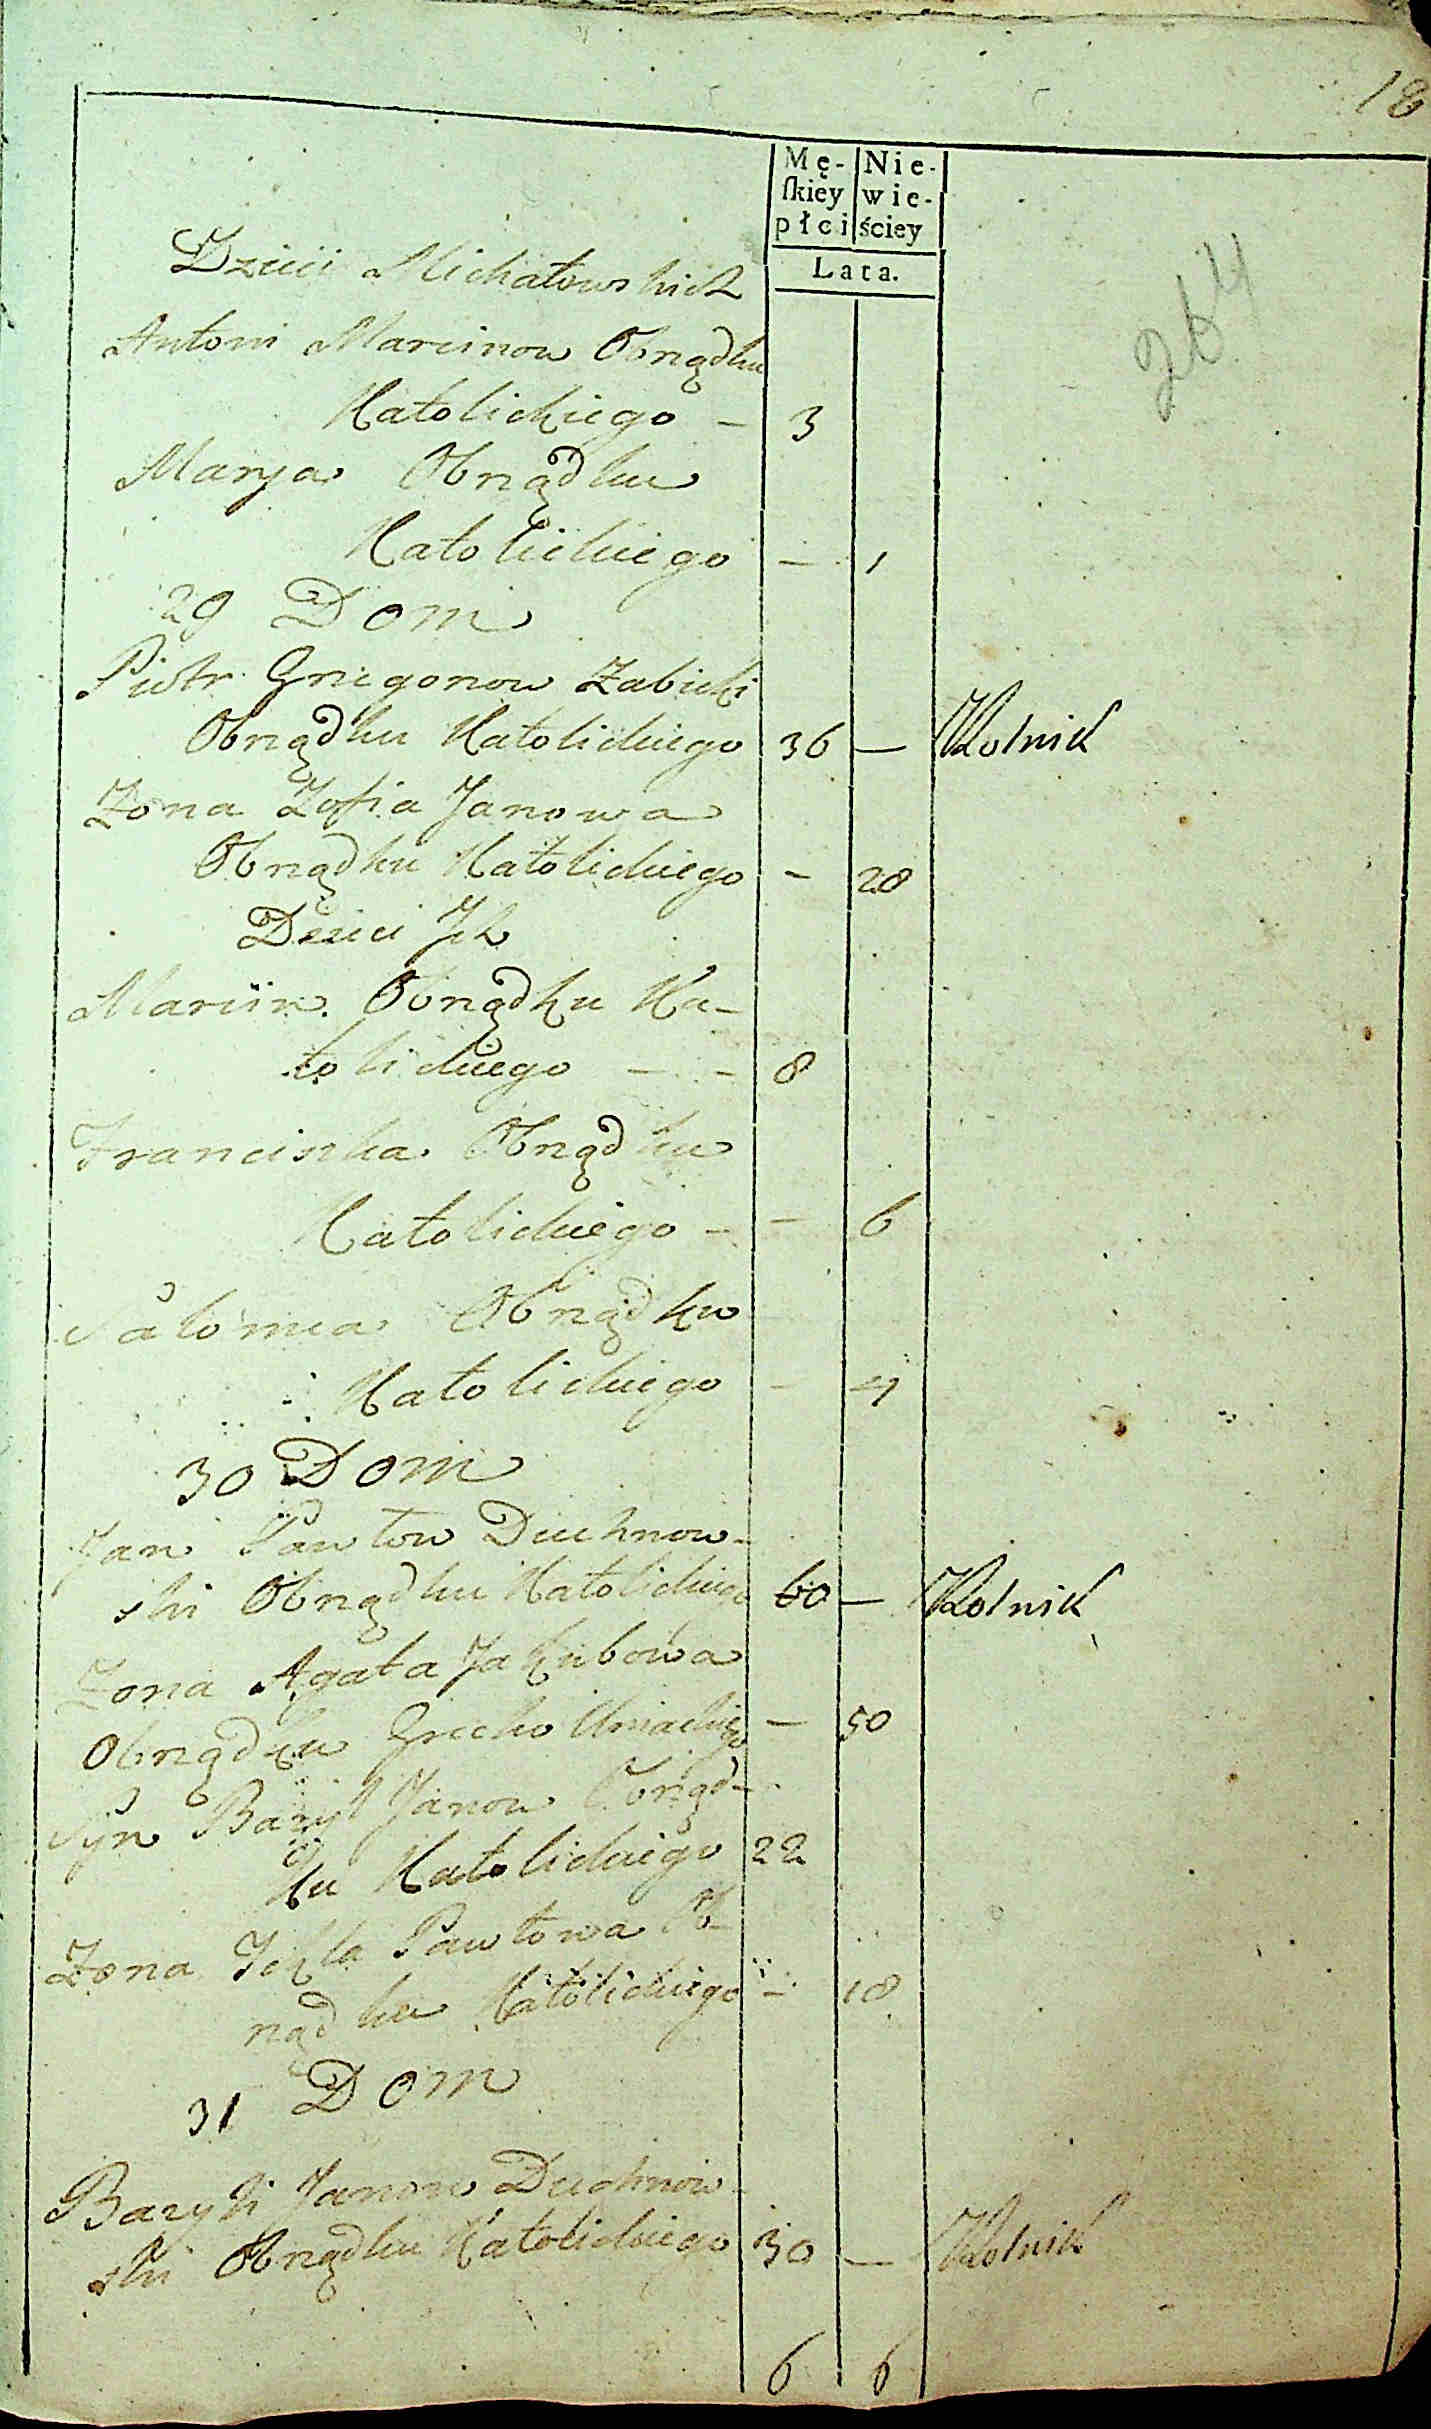 18
Mę- Nie-
ſkiey wie-
płci ściey
Lata.
264
Dzieci Michałowskich
Antoni Marcinow Obrządku
Katolickiego - 3
Marya Obrządku
Katolickiego - 1
29 Dom
Piotr Gregorow Zabicki
Obrządku Katolickiego 36 - Rolnik
Zona Zofia Janowa
Obrządku Katolickiego - 28
Dzieci Jch
Marcin Obrządku Ka-
tolickiego - - 8
Franciszka Obrządku
Katolickiego - - 6
Sałomea Obrządku
Katolickiego - 4
30 Dom
Jan Pawłow Duchnow-
ski Obrządku Katolickiego 60 - Rolnik
Zona Agata Jakubowa
Obrządku Grecko Uniackiego - 50
Syn Bazyl Janow Obrząd-
ku Katolickiego 22
Zona Tekla Pawłowa Ob-
rządku Katolickiego - 18
31 Dom
Bazyli Janow Duchnow-
ski Obrządku Katolickiego 30 - Rolnik
6 6